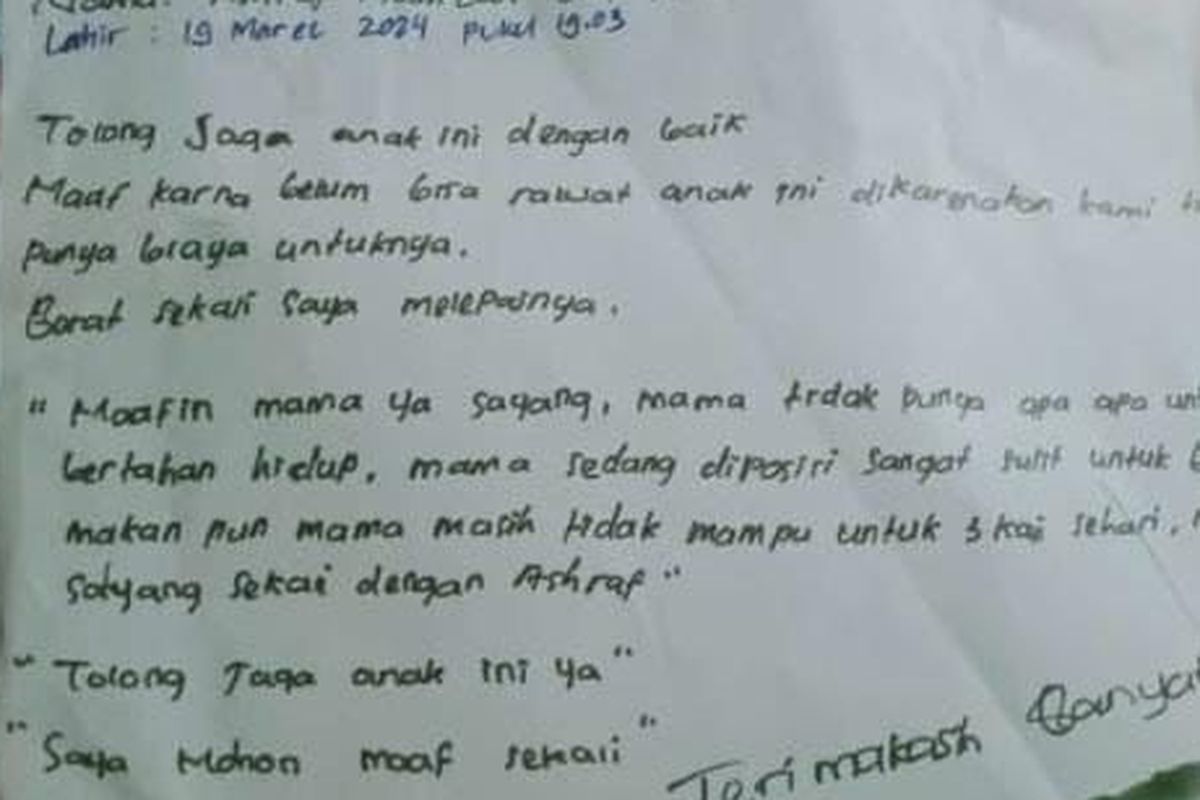 Lahir : 19 Maret 2024 pukul 19.03
Tolong Jaga anak ini dengan baik
Maaf karna belum bisa rawat anak ini dikarenakan kami
punya biaya untuknya.
Barat sekali saya melepasnya.
" Maafin mama ya sayang, mama tidak punya apa apa un
bertahan hidup, mama sedang diposisi sangat sulit untuk
makan pun mama masih tidak mampu untuk 3 kai sehari.
satyang sekai dengan Ashraf "
" Tolong Jaga anak ini ya "
" Saya Mohon maaf sekali "
Terimakasih Banyak